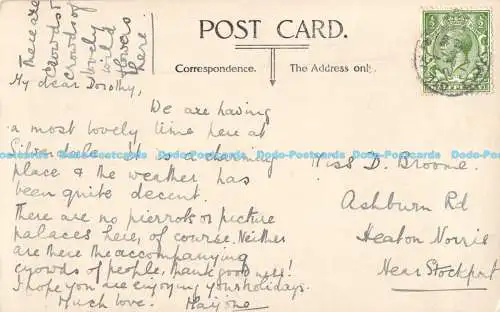 There are
crowds &
crowds of
lovely
wild
flowers
here.
POST CARD.
Correspondence.
The Address only.
My dear Dorothy,
We are having
a most lovely time here at
Silverdale. It is a charming
place & the weather has
been quite decent.
There are no pierrots or picture
palaces here, of course. Neither
are there the accompanying
crowds of people, thank goodness!
I hope you are enjoying your holidays.
Much love. Marjorie
Miss D. Broome.
Ashburn Rd
Heaton Norris
Near Stockport
Dodo-Postcards Dodo-Postcards Dodo-Postcards Dodo-Postcards